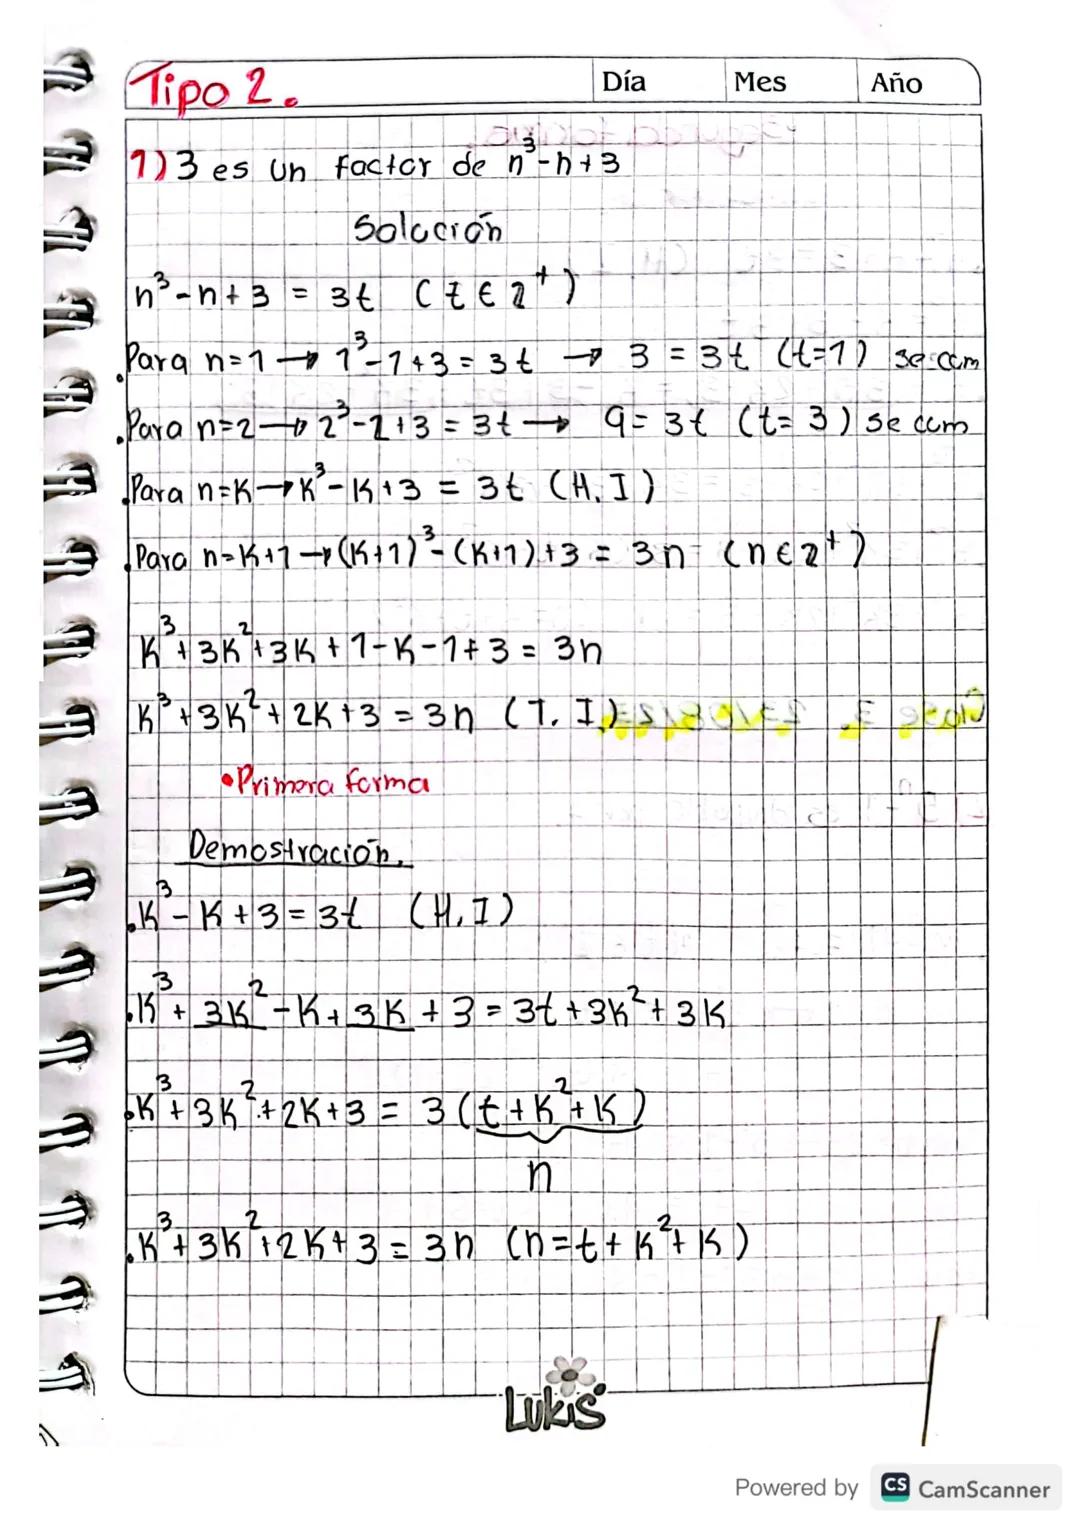 Tipo 2.
Día Mes Año
1) 3 es un factor de n³-n+3
Solución
n³-n+3 = 3t (t ∈ Z⁺)
.Para n=1 → 1³-1+3 = 3t → 3 = 3t (t=1) se cum
.Para n=2 → 2³-2+3 = 3t → 9 = 3t (t= 3) se cum
.Para n=K → K³-K+3 = 3t (H.I)
.Para n=K+1 → (K+1)³-(K+1)+3 = 3n (n ∈ Z⁺)
K³+3K²+3K+1-K-1+3 = 3n
K³+3K²+2K+3 = 3n (T.I)
•Primera forma
Demostración.
.K³-K+3 = 3t (H.I)
.K³+3K²-K+3K+3 = 3t+3K²+3K
.K³+3K²+2K+3 = 3(t+K²+K)
n
.K³+3K²+2K+3 = 3n (n=t+K²+K)
Lukis
Powered by CS CamScanner